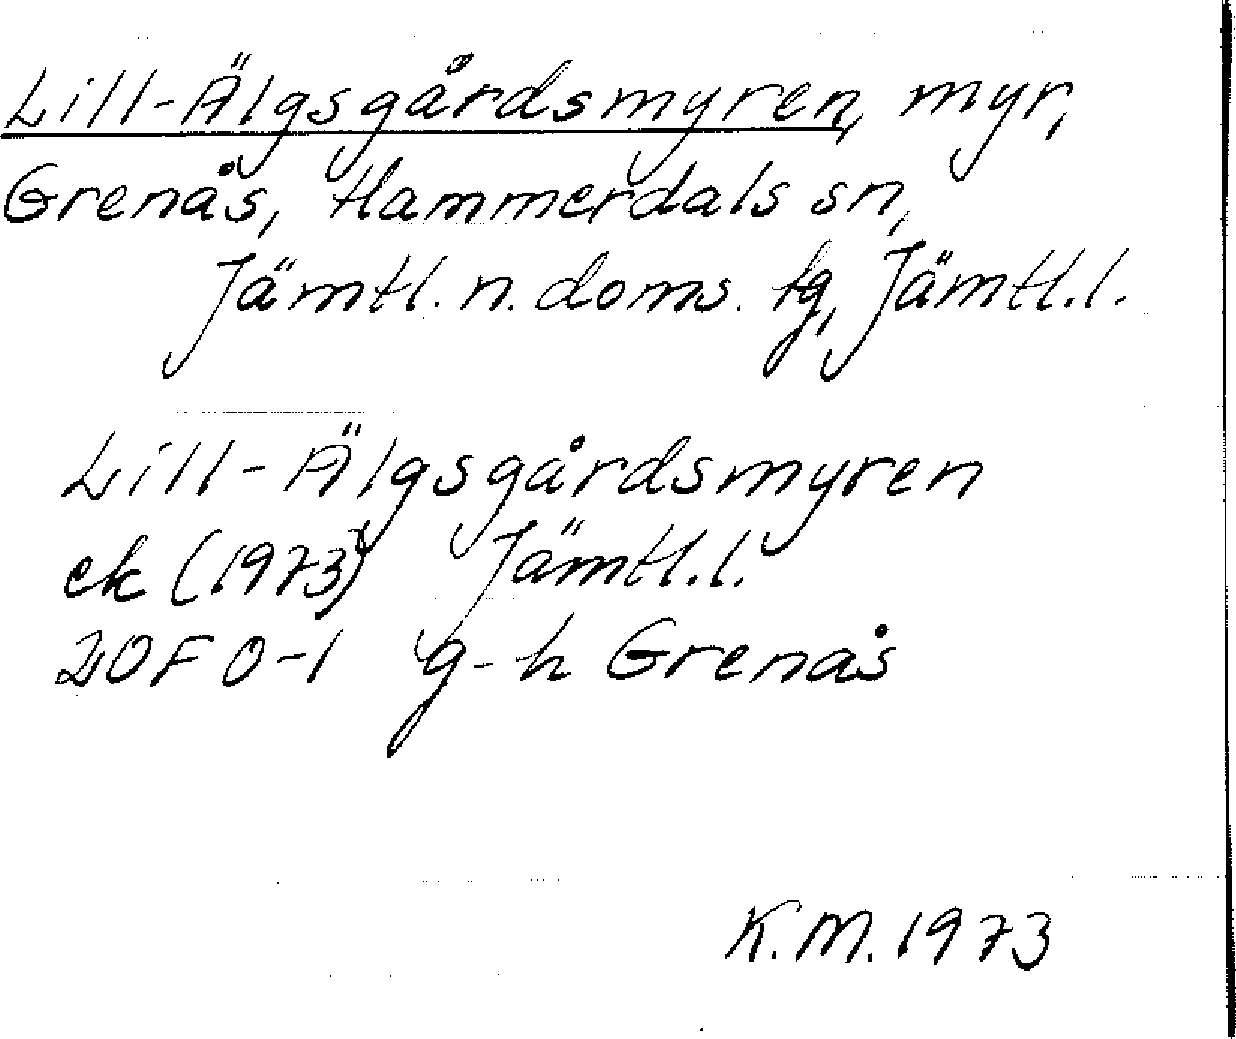 Lill-Älgsgårdsmyren, myr,
Grenås, Hammerdals sn,
Jämtl. n. doms. tg, Jämtl.l.
Lill-Älgsgårdsmyren
ek (1973) Jämtl.l.
20F 0-1 g-h Grenås
K.M. 1973